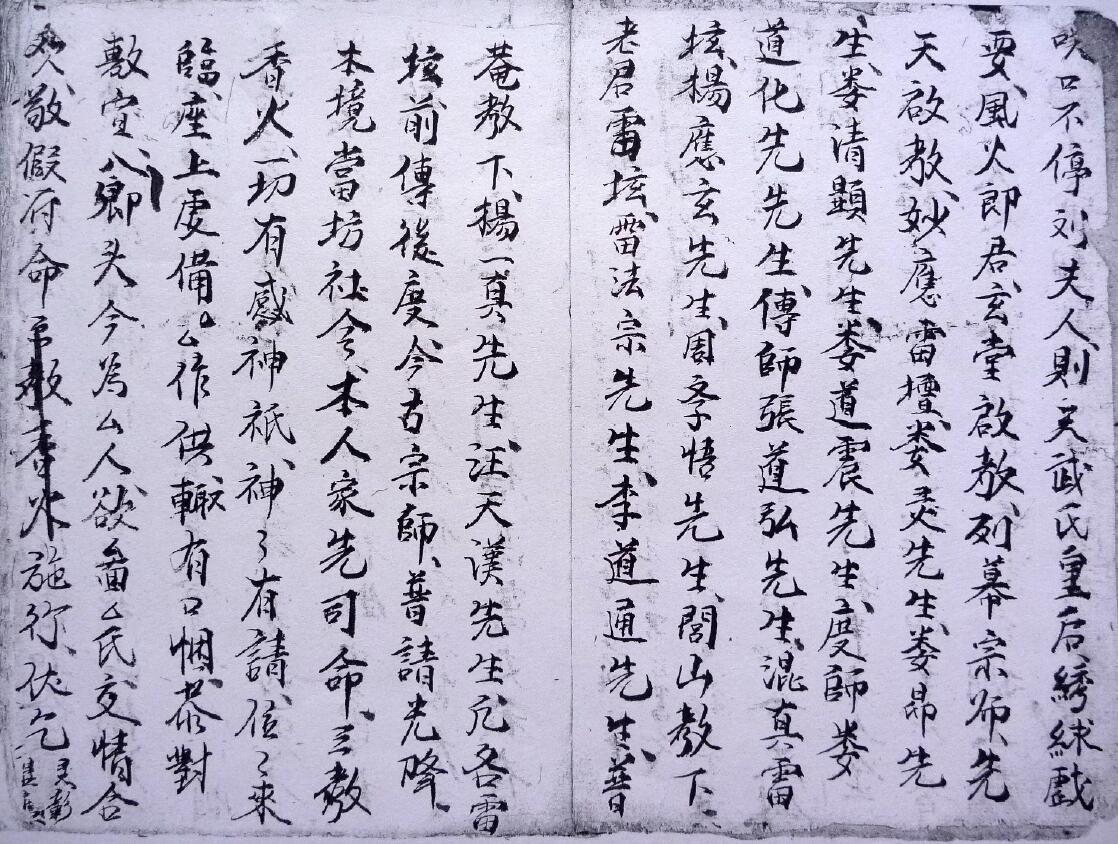 咲口不停刘夫人則天武氏皇后綉綵戯
耍風火郎君玄堂啟教列幕宗师先
天啟教妙應雷壇娄灵先生娄昂先
生娄清顯先生娄道震先生度師娄
道化先先生傳師張道弘先生混真雷
坛楊應玄先生周孚悟先生閭山教下
老君雷坛雷法宗先生李道通先生普
菴教下楊一真先生汪天漢先生凢各雷
坛前傳後度今古宗師普請光降
本境當坊社令本人家先司命三教
香火一切有感神祇神〻有請位〻來
臨座上虔備厶作供輙有口悃恭對
敷宣八卿头今為厶人欲啚厶氏交情合
敬假府命吊教香火施行伏乞